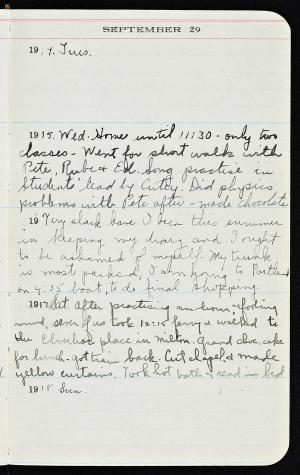 SEPTEMBER 29
1914. Tues.
1915. Wed. Home until 11:30 - only two
classes - Went for short walk with
Pete, Rube & Ed. Song practise in
Students' lead by Cutty. Did physics
problems with Pete after - made chocolate
19 Very slack have I been this summer
in keeping my diary and I ought
to be ashamed of myself. My trunk
is most packed, I am going to Portland
on 4:35 boat, to do final shopping.
1917 Sat after practising an hour,
wind, seven of us took 12:15 ferry & walked to
the place in Milton. Grand dive, cake
for lunch - got train back. Cut chapel & made
yellow curtains. Took hot bath & read in bed
1918 Sun.